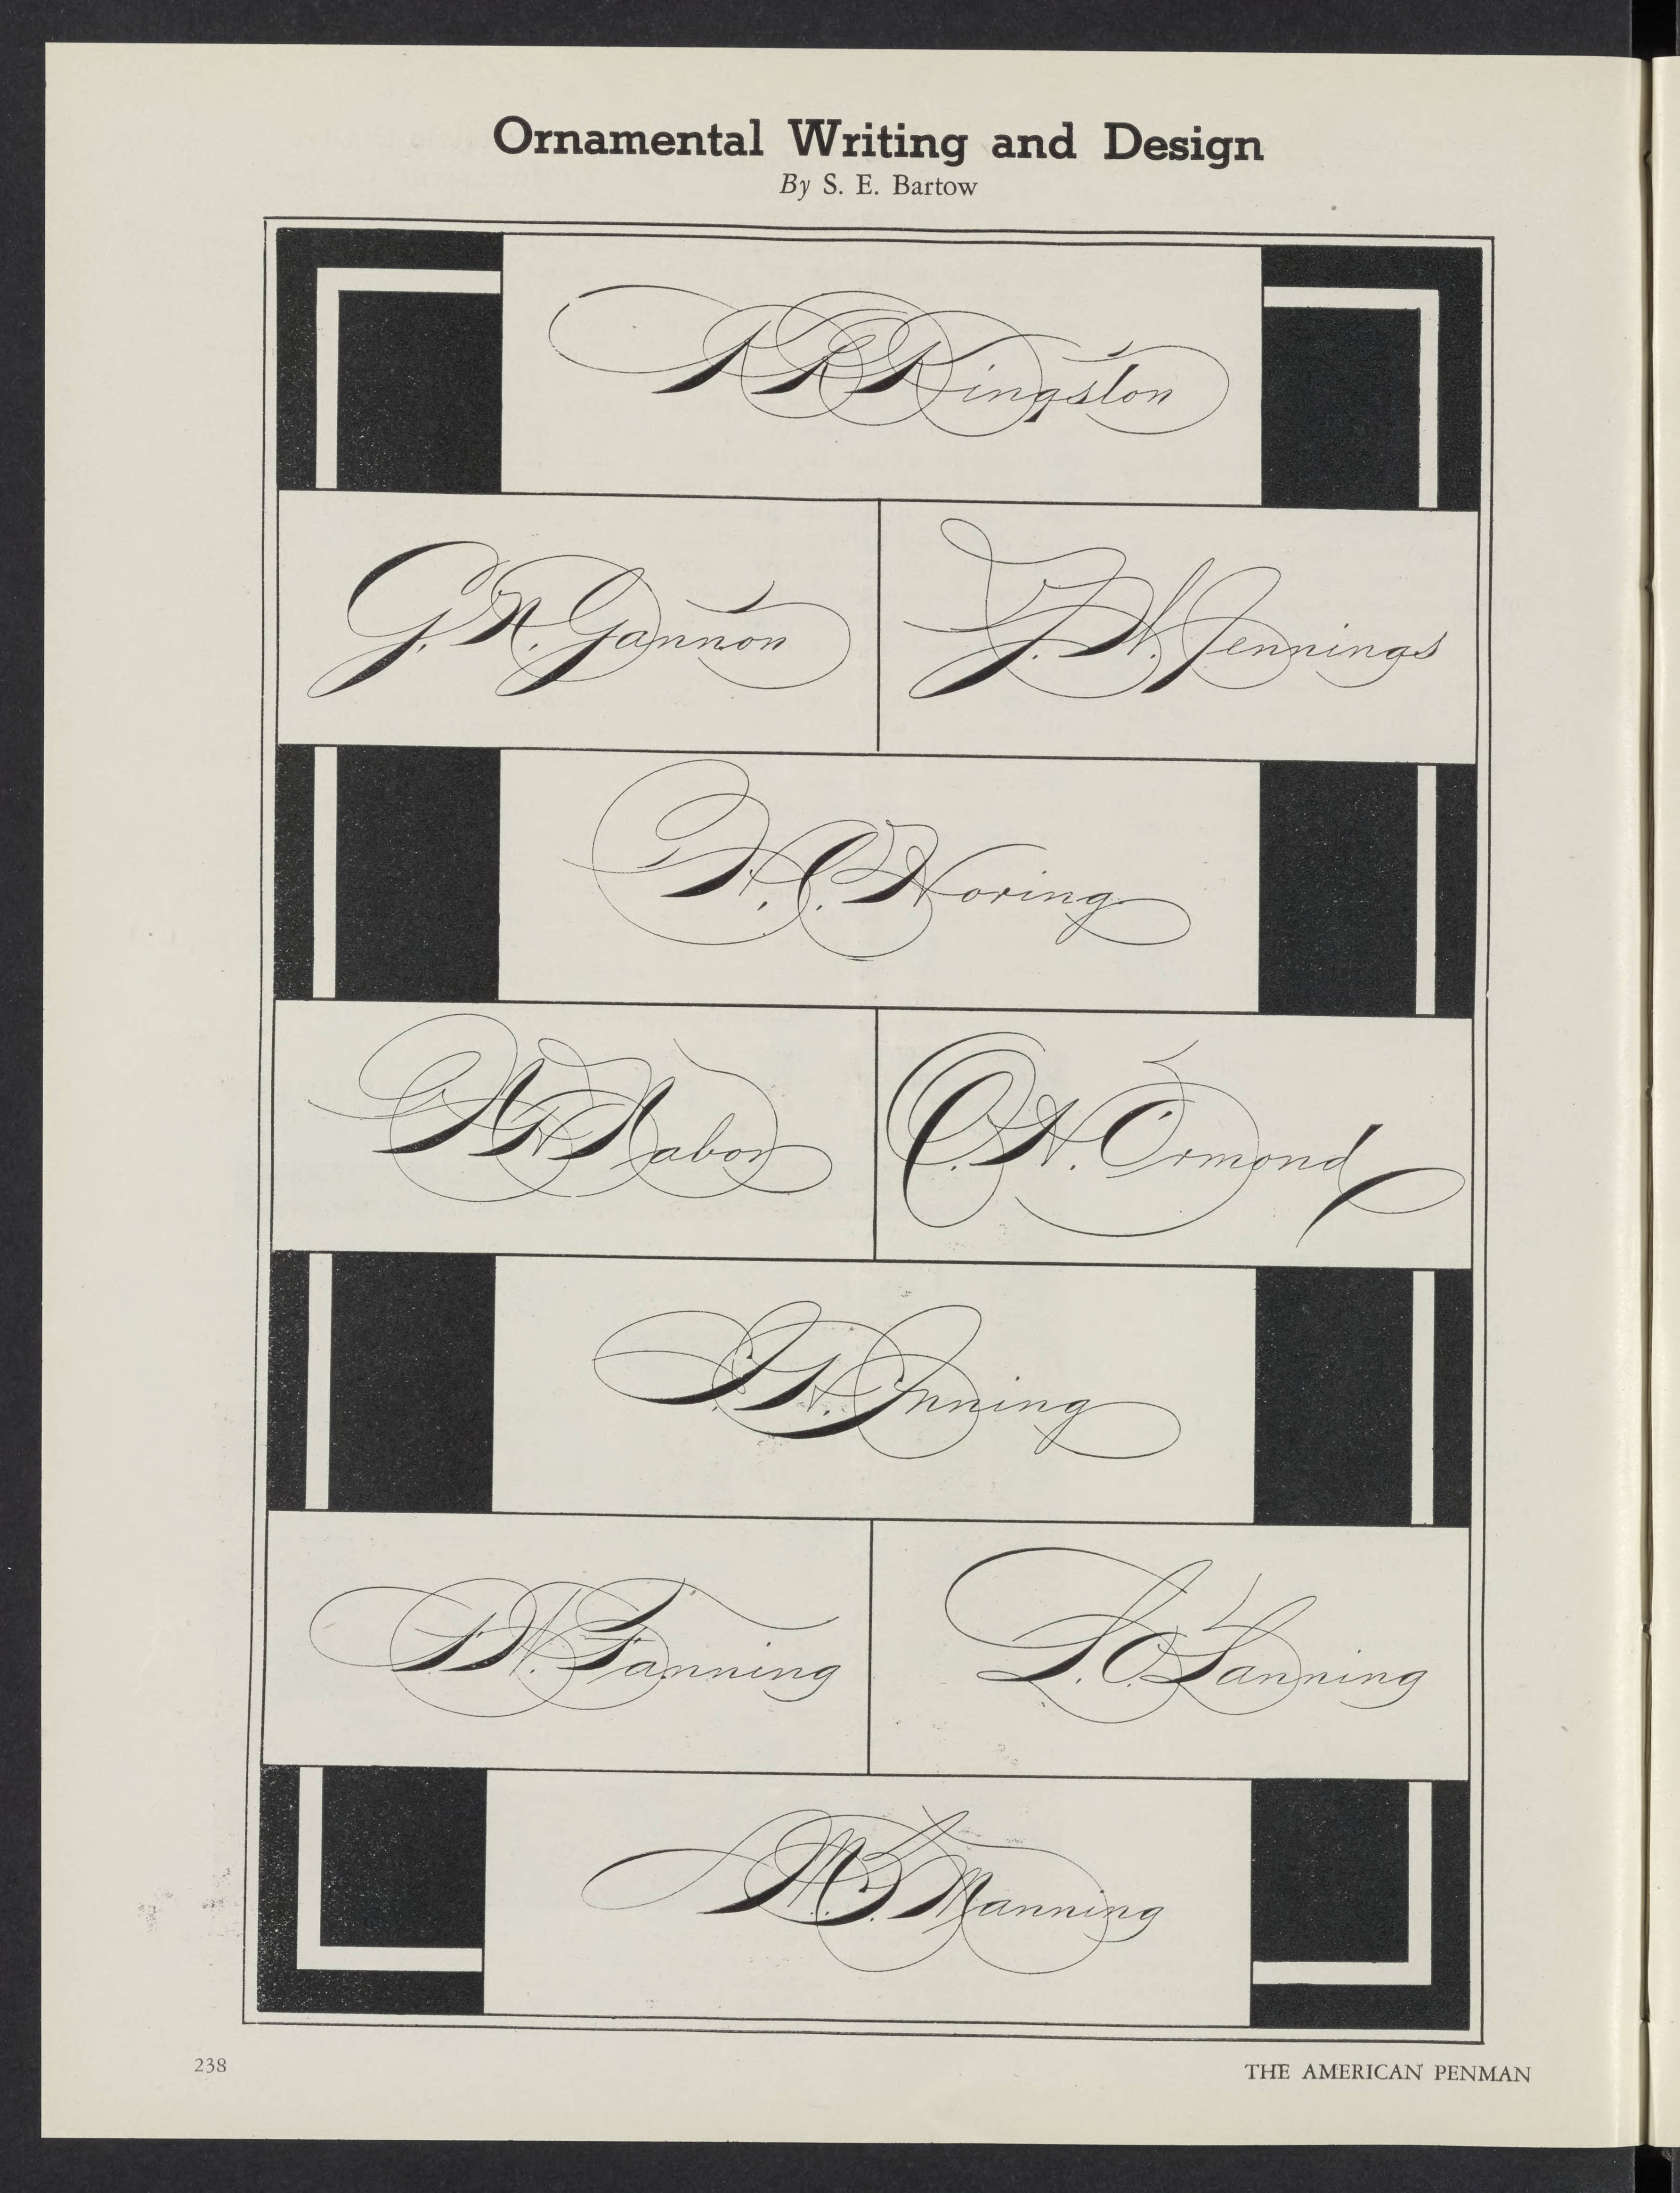 Ornamental Writing and Design
By S. E. Bartow
Kingston
G. N. Gannon
J. W. Jennings
Noring
Nabor
O. N. Ormond
Inning
Fanning
L. O. Lanning
Manning
238
THE AMERICAN PENMAN